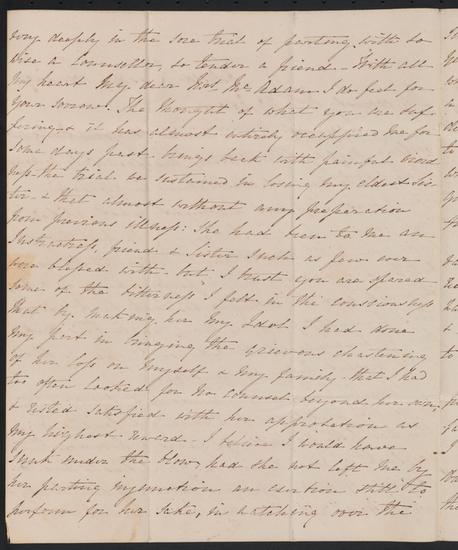 very deeply in the sore trial of parting with so
wise a Counsellor, so tender a friend - With all
my heart My dear Mrs McAdam I do feel for
your sorrow. The thought of what you are suf
fering & it has almost entirely occupied me for
some days past - brings back with painful
ness the trial we sustained in losing my eldest Sis
ter - & that almost without any preparation
from previous illness: She had been to me an
Instructress, friend & Sister such as few ever
were blessed with - but I trust you are spared
some of the bitterness I felt in the consciousness
that by making her my Idol I had done
my part in bringing the grievous chastening
of her loss on myself & my family - that I had
too often looked for no counsel beyond her own,
& rested satisfied with her approbation as
my highest reward - I believe I would have
sunk under the blow, had she not left me by
her parting injunction an exertion still to
perform for her sake, in watching over the